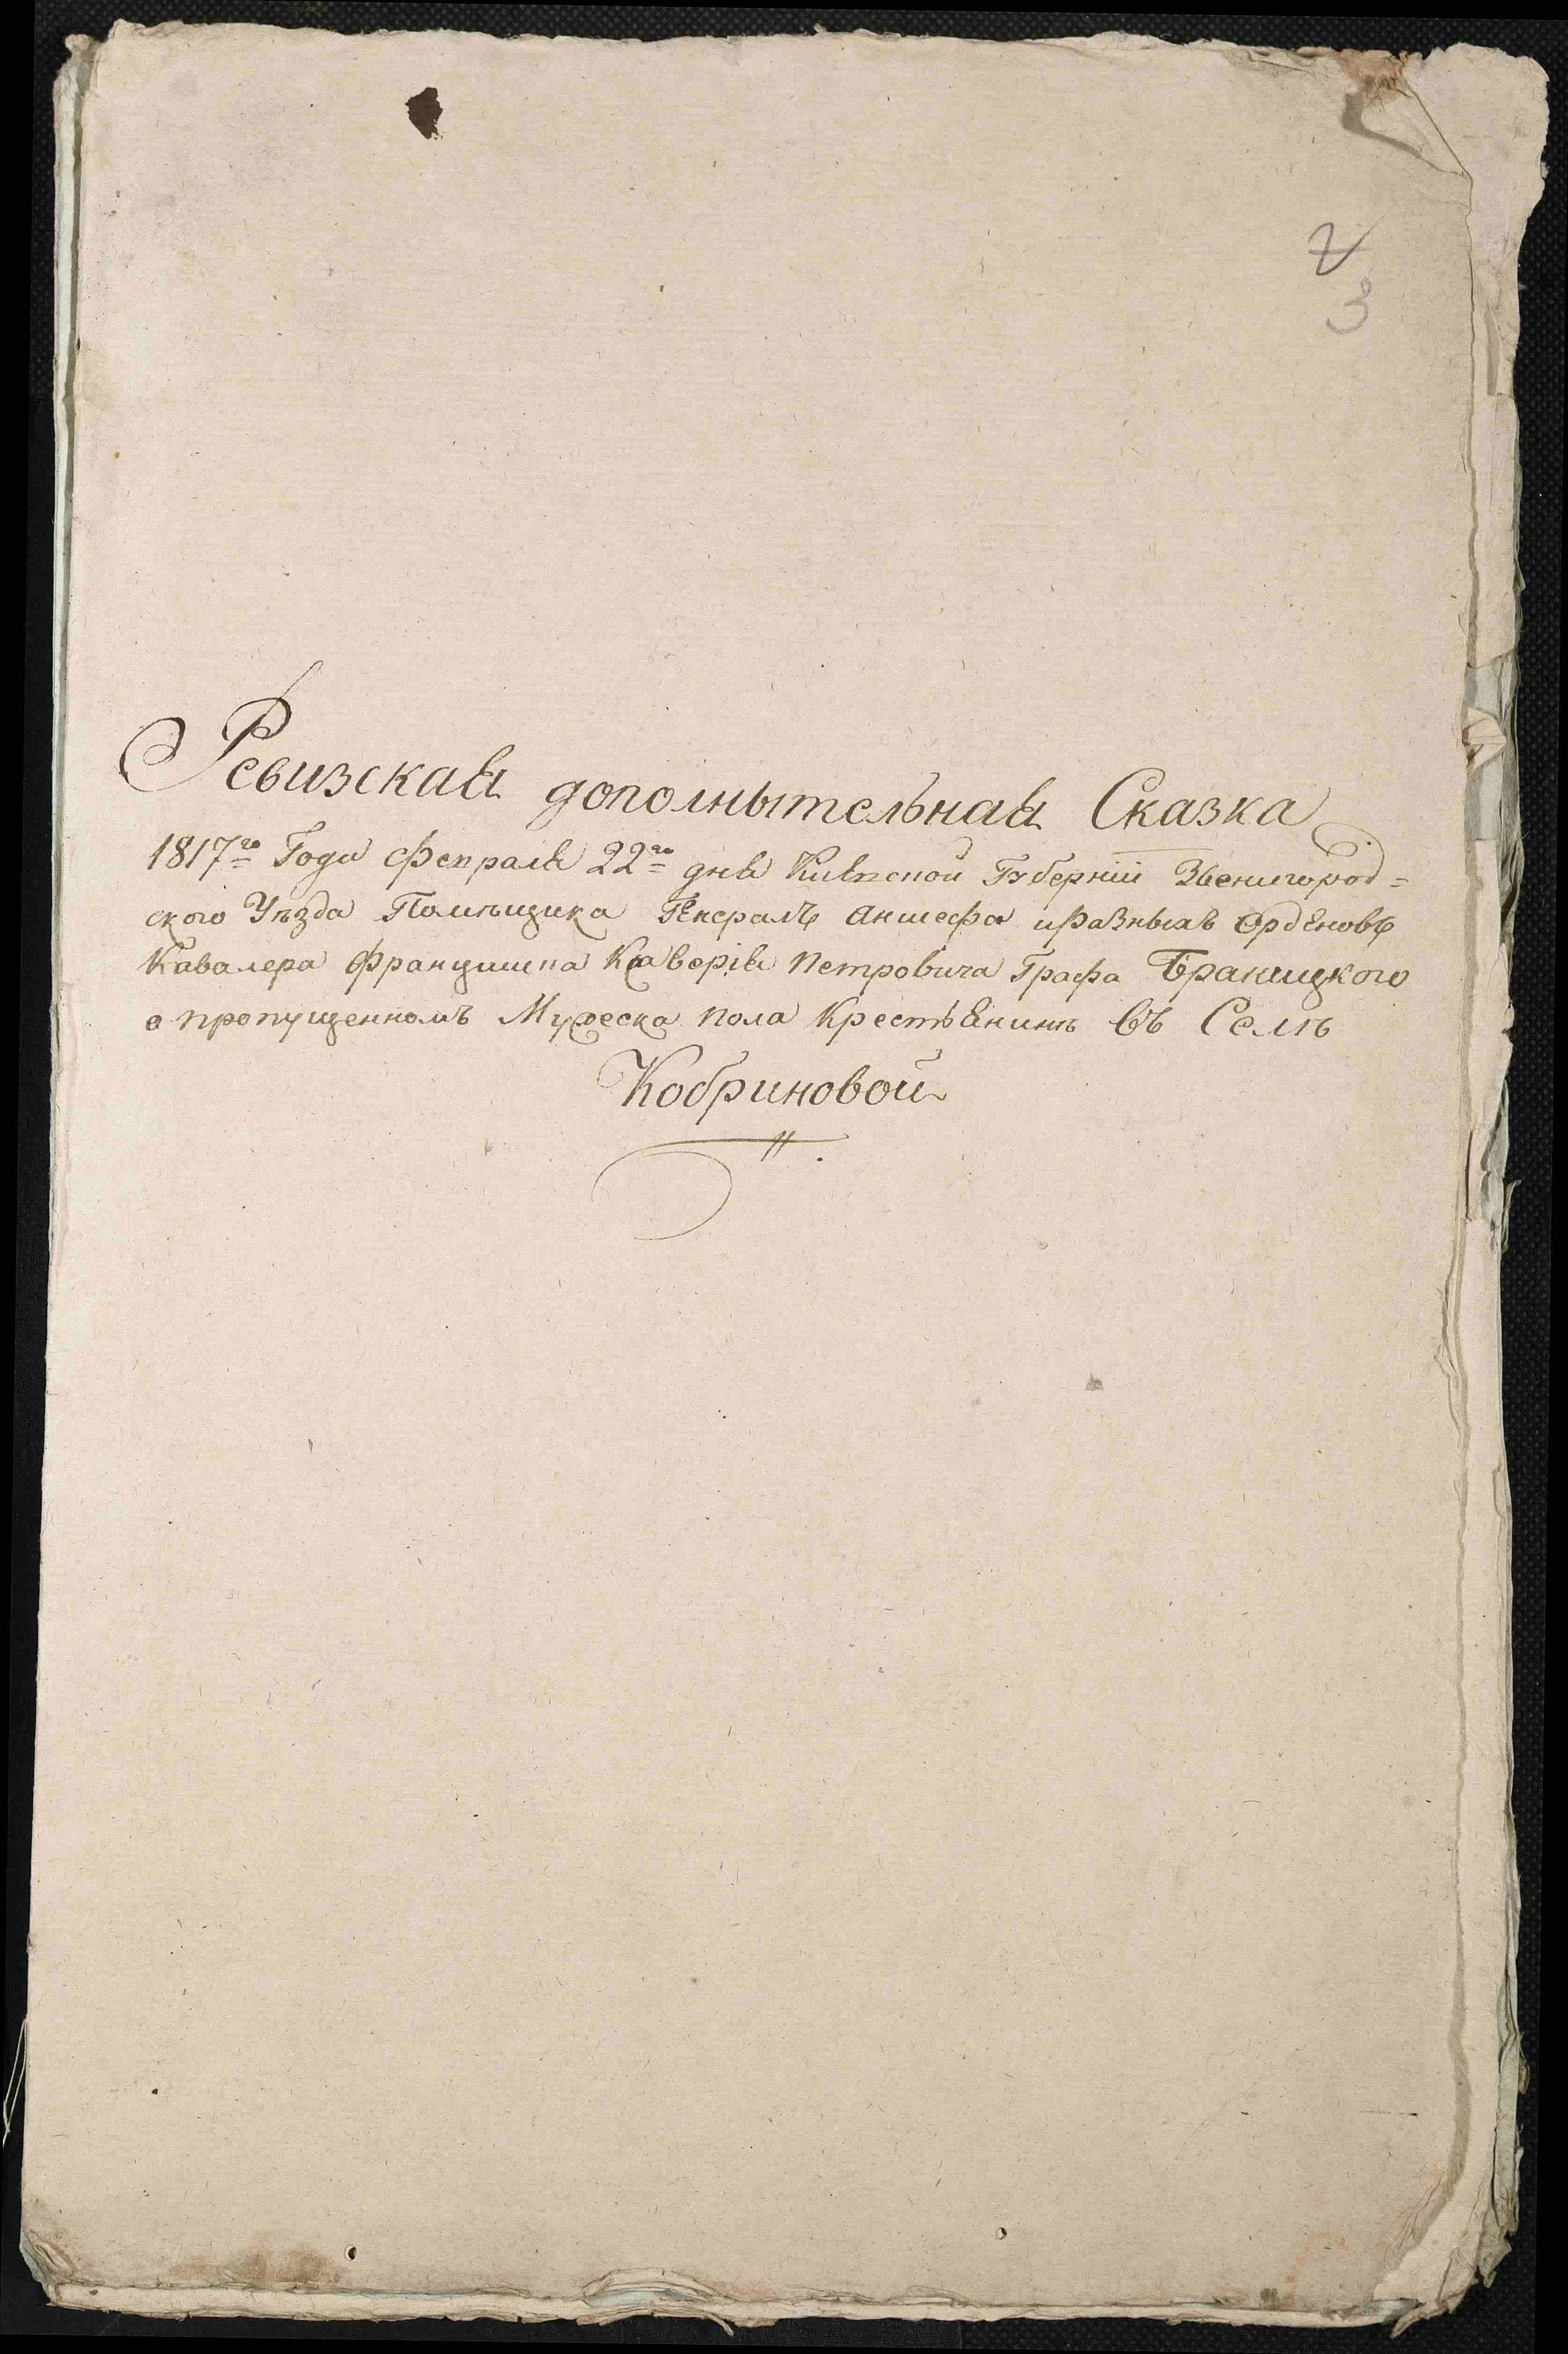 2
3
Ревизская дополнытельная Сказка
1817го Года Февраля 22го дня Киевской Губернии Звенигород=
ского Уѣзда Помѣщика Генералъ Аншефа и разныхъ Орденовъ
Кавалера Францишка Ксаверія Петровича Графа Браницкого
о пропущенномъ Мужеска пола Крестьянинѣ въ Селѣ
Кобриновой